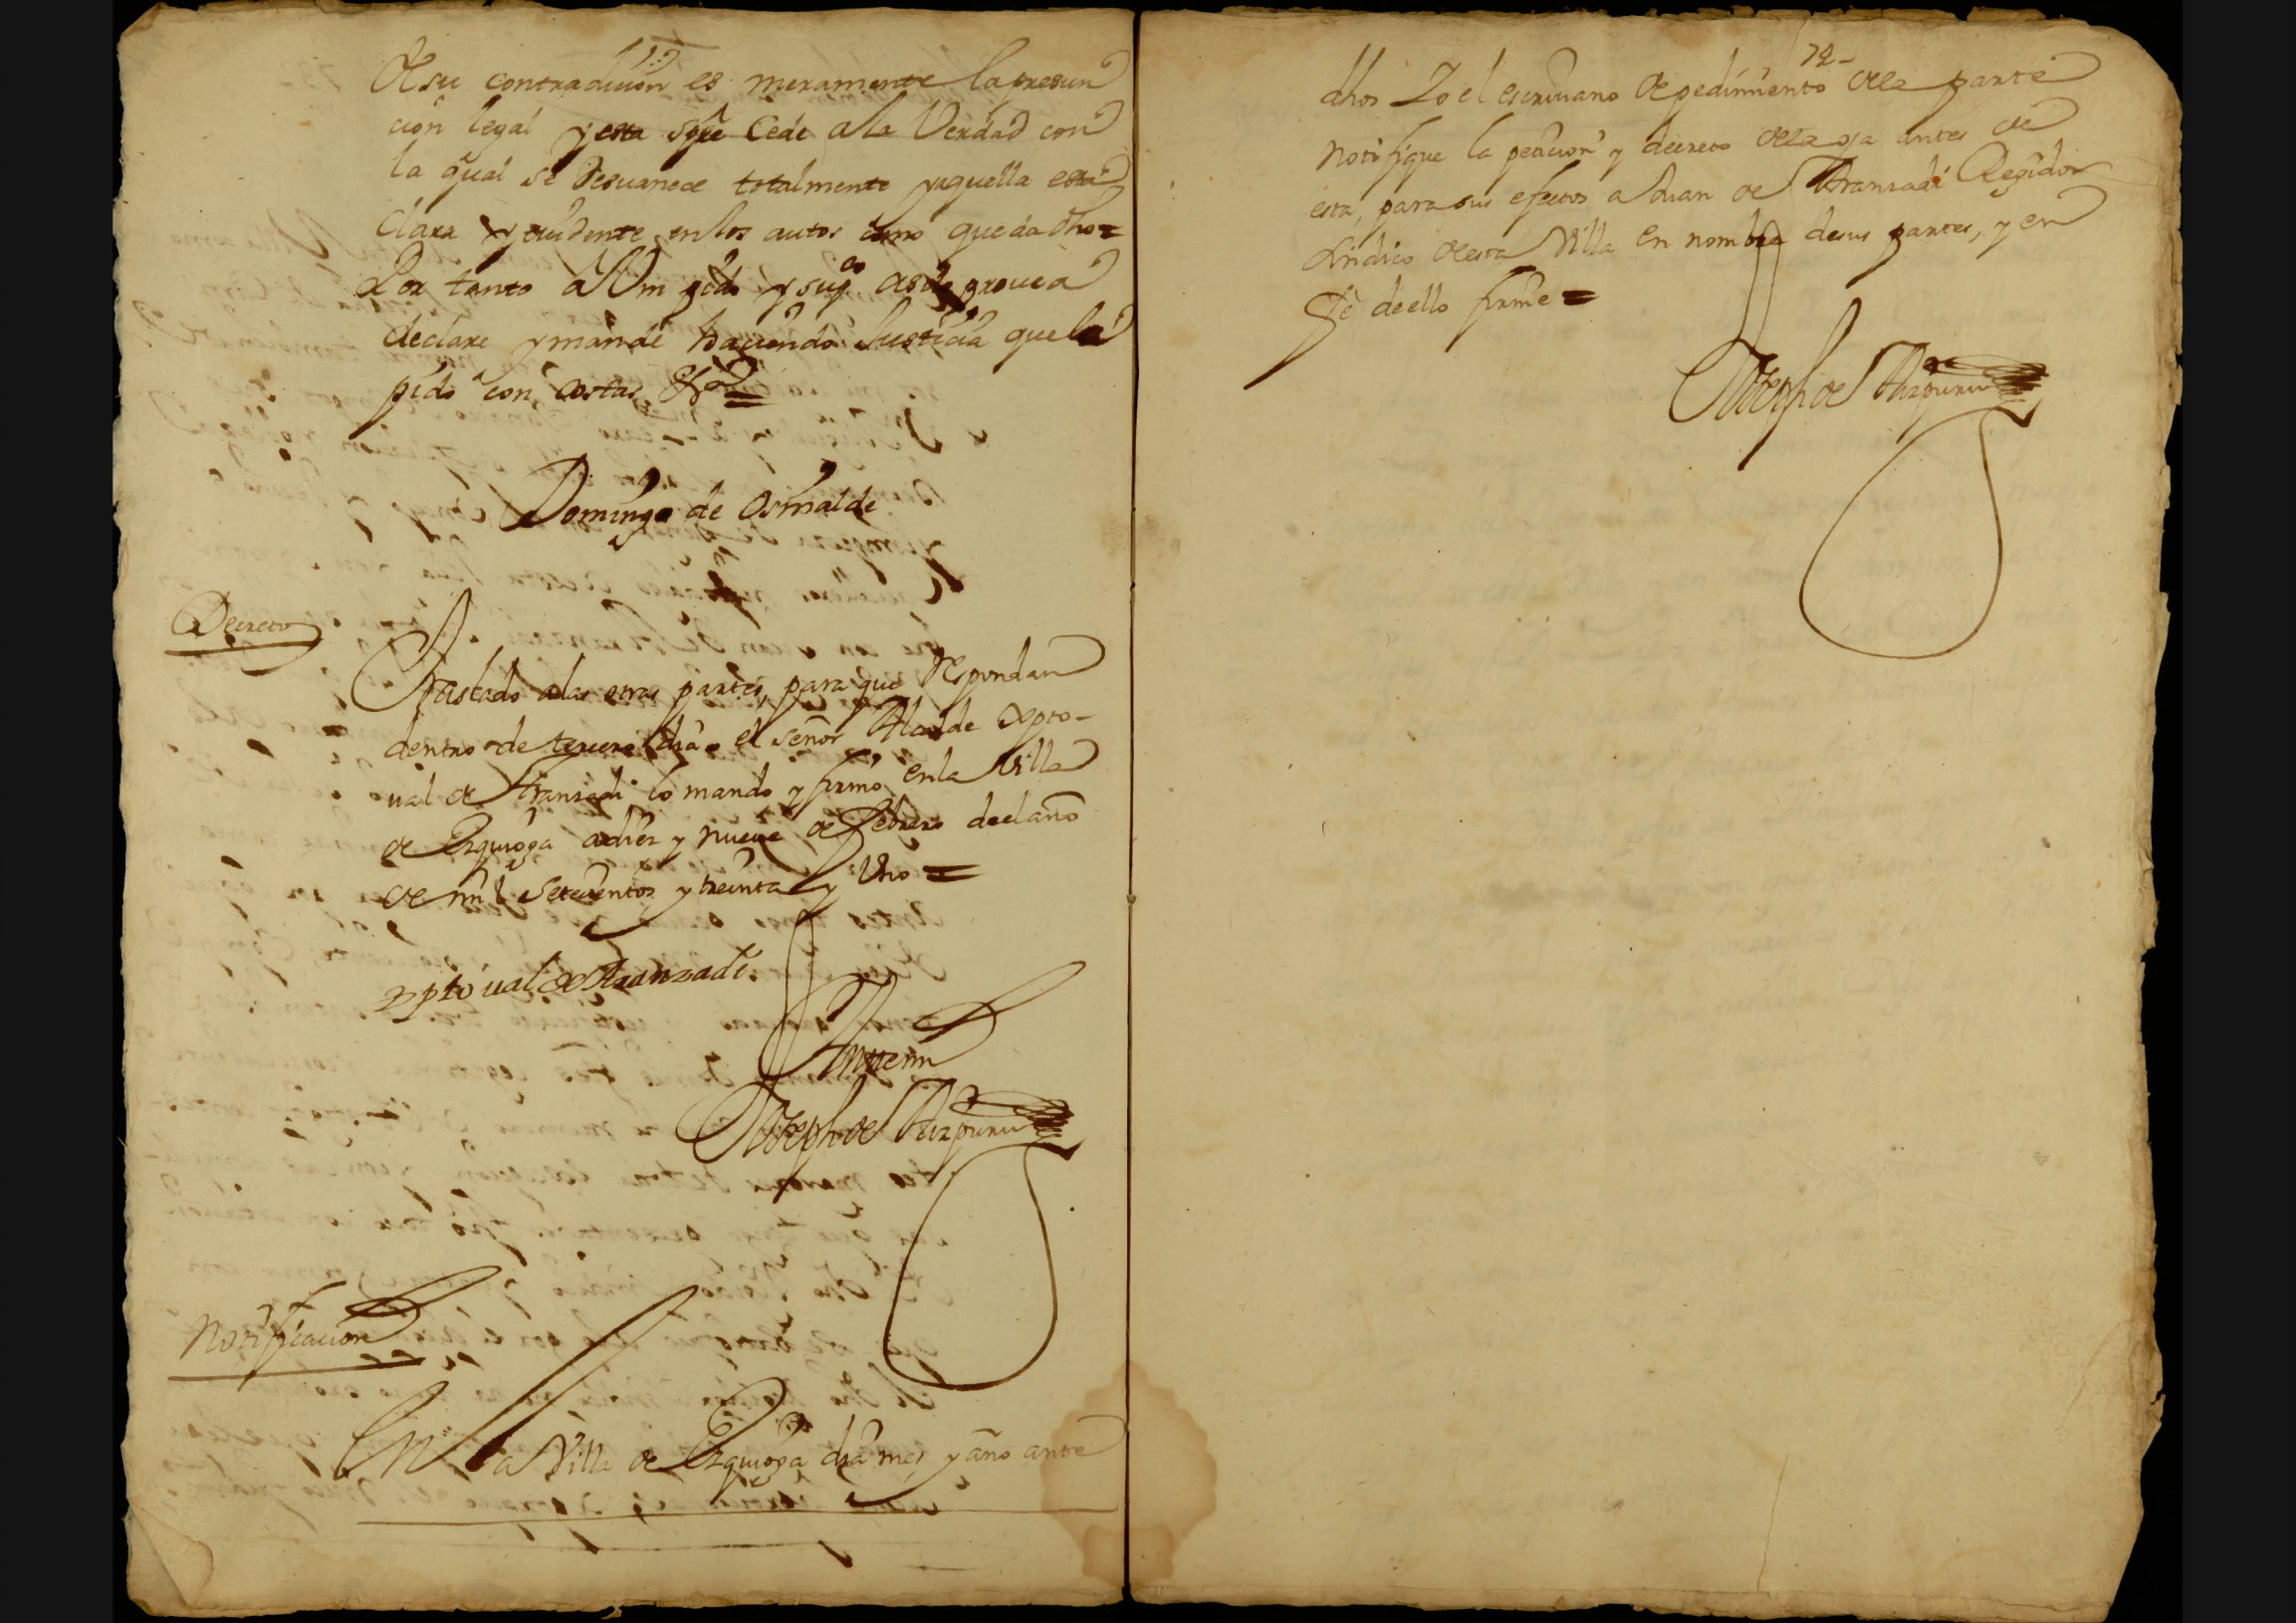 de su contradicion es meramente la presun
cion legal y esta spre cede a la Verdad con
la qual se desuanece totalmente y aquella esta
Clara y euidente en los autos como queda dho=
Por tanto a Vm pido y supco asi lo prouea
declare y mande haciendo Justicia que la
pido con costas &a=
Domingo de Osinalde
Decreto
Traslado a las otras partes, para que Respondan
dentro de tercero dia, el señor Alcalde Xpto-
ual de Aranzadi lo mando y firmo en la Villa
de Ezquioga a diez y nueve de febrero de el año
de mil Setecientos y treinta y Uno=
Xptoual de Aranzadi
Antte mi
Joseph de Aizpuru
Notificacion
En la Villa de Ezquioga dia mes y año ante
72-
dhos Yo el escriuano de pedimiento de la parte
notifique la peticion y decreto de la oja antes de
esta, para sus efectos a Juan de Aranzadi Regidor
Sindico de esta Villa en nombre de sus partes, y en
Fè de ello firme=
Joseph de Aizpuru